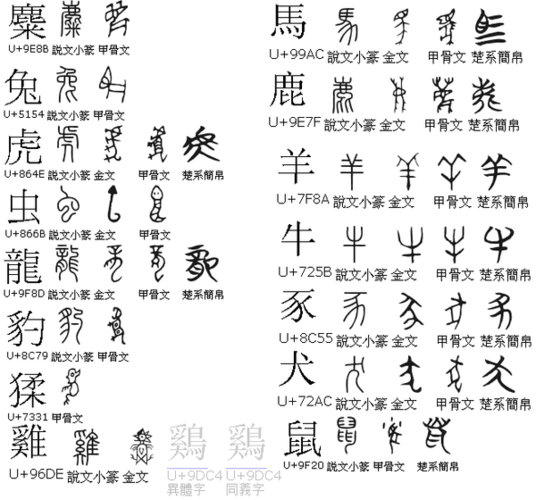 麋
U+9E8B 說文小篆 甲骨文
兔
U+5154 說文小篆 甲骨文
虎
U+864E 說文小篆 金文 甲骨文 楚系簡帛
虫
U+866B 說文小篆 金文 甲骨文
龍
U+9F8D 說文小篆 金文 甲骨文 楚系簡帛
豹
U+8C79 說文小篆 甲骨文
猱
U+7331 甲骨文
雞 鷄 鷄
U+96DE 說文小篆 金文 U+9DC4 U+9DC4
異體字 同義字
馬
U+99AC 說文小篆 金文 甲骨文 楚系簡帛
鹿
U+9E7F 說文小篆 金文 甲骨文 楚系簡帛
羊
U+7F8A 說文小篆 金文 甲骨文 楚系簡帛
牛
U+725B 說文小篆 金文 甲骨文 楚系簡帛
豕
U+8C55 說文小篆 金文 甲骨文 楚系簡帛
犬
U+72AC 說文小篆 金文 甲骨文 楚系簡帛
鼠
U+9F20 說文小篆 甲骨文 楚系簡帛